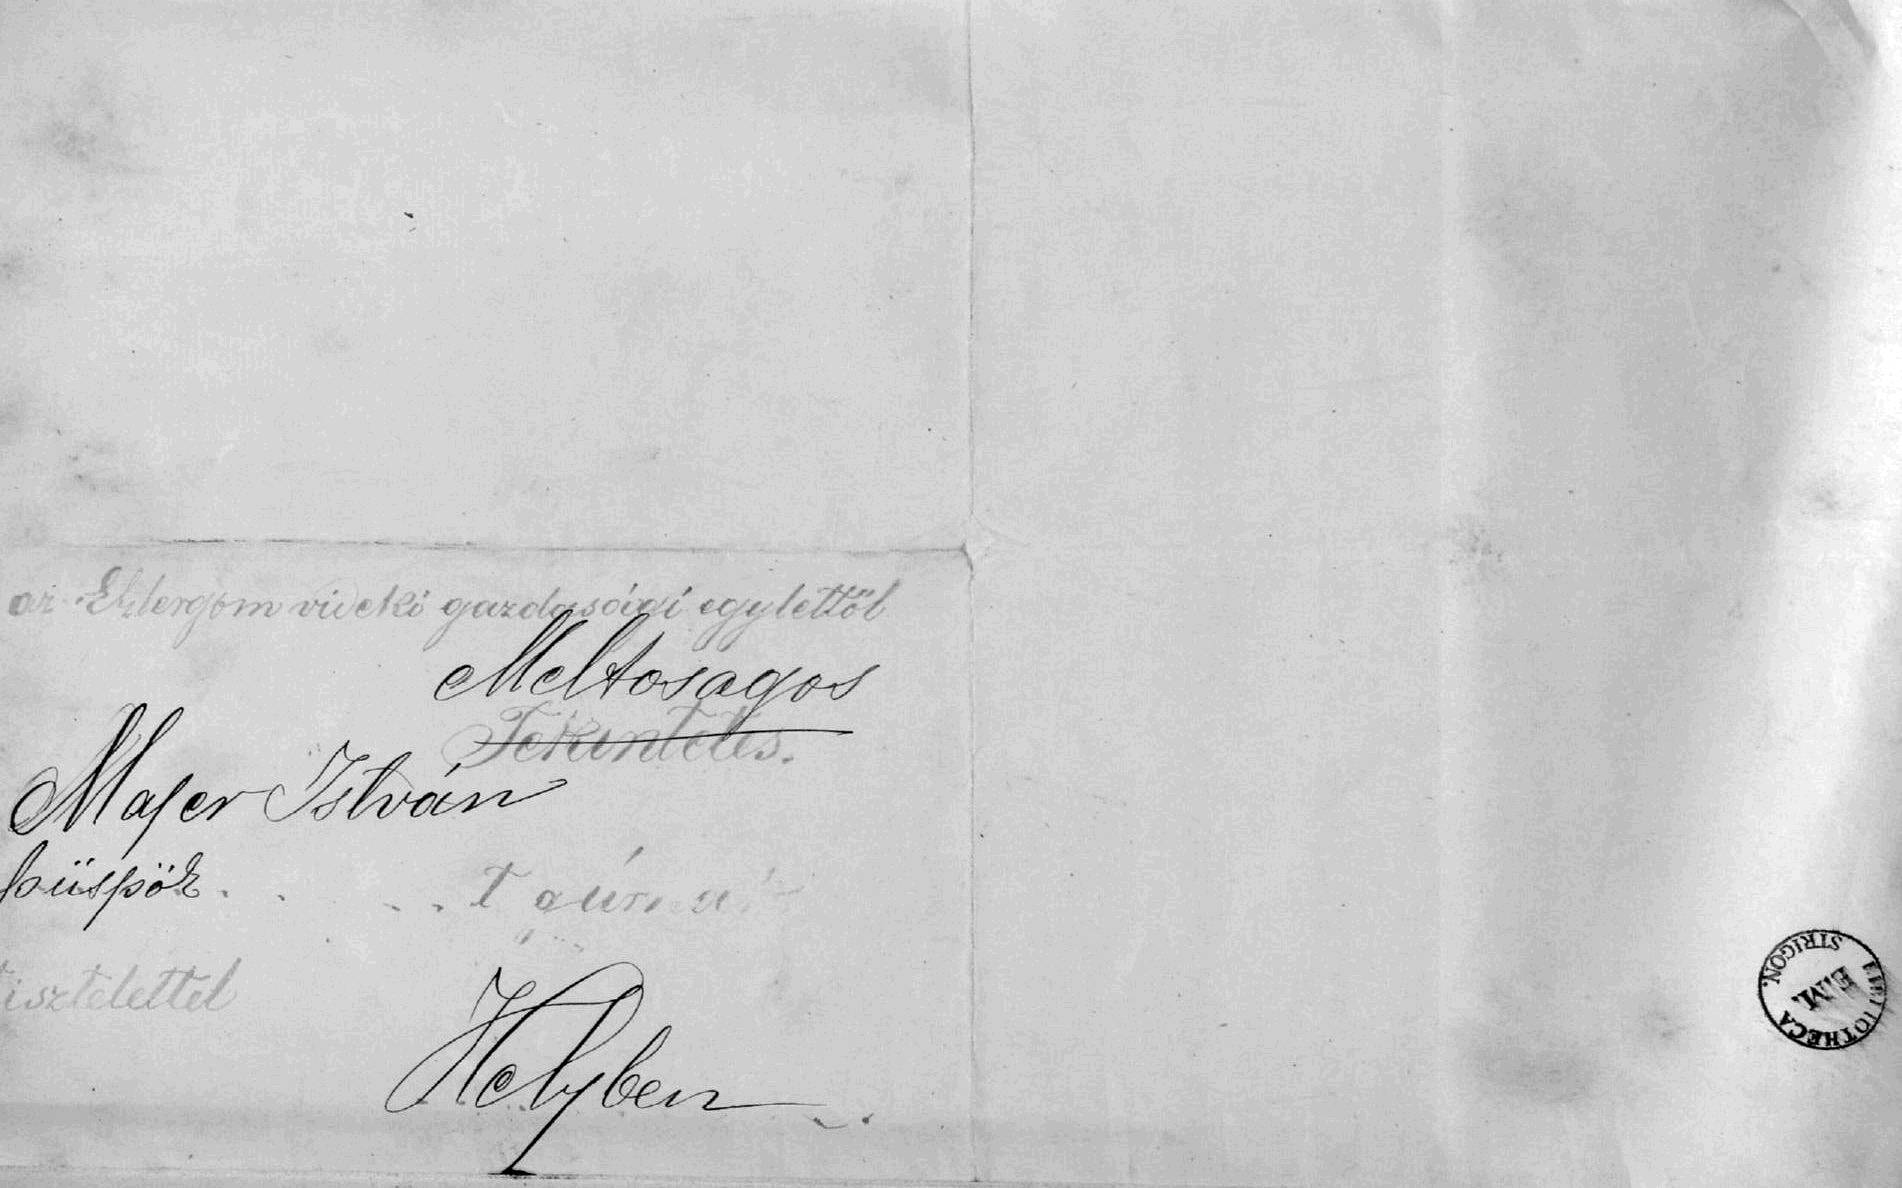 az Esztergom videki gazdasági egylettől
Meltosagos
Tekintetes.
Majer István
püspök
t
tisztelettel
Helyben
BIBLIOTHECA
E.M.
STRIGON.